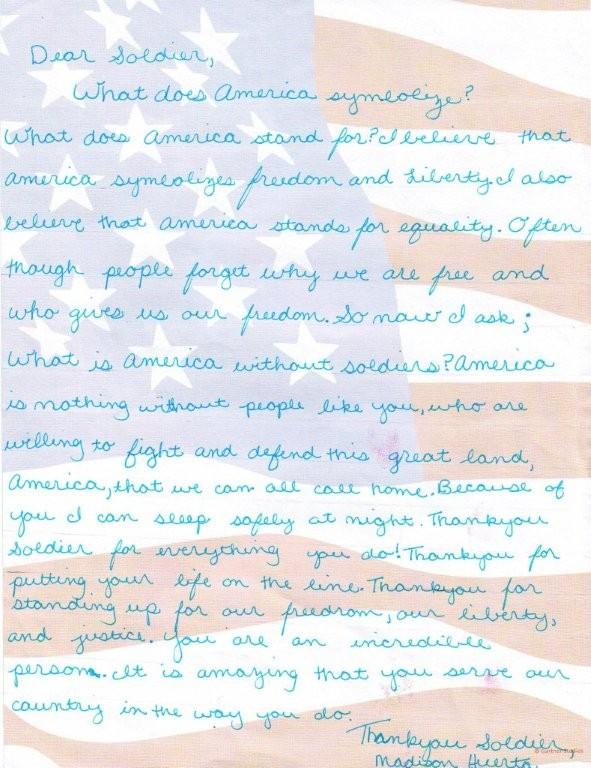 Dear Soldier,
What does America symbolize?
What does America stand for? I believe that
america symbolizes freedom and liberty I also
believe that america stands for equality. Often
though people forget why we are free and
who gives us our freedom. So now I ask;
What is America without soldiers? America
is nothing without people like you, who are
willing to fight and defend this great land,
America, that we can all call home. Because of
you I can sleep safely at night. Thankyou
Soldier for everything you do! Thankyou for
putting your life on the line. Thankyou for
standing up for our freedrom, our liberty,
and justice. You are an incredible
person. It is amazing that you serve our
country in the way you do.
Thankyou Soldier,
Madison Huerta.